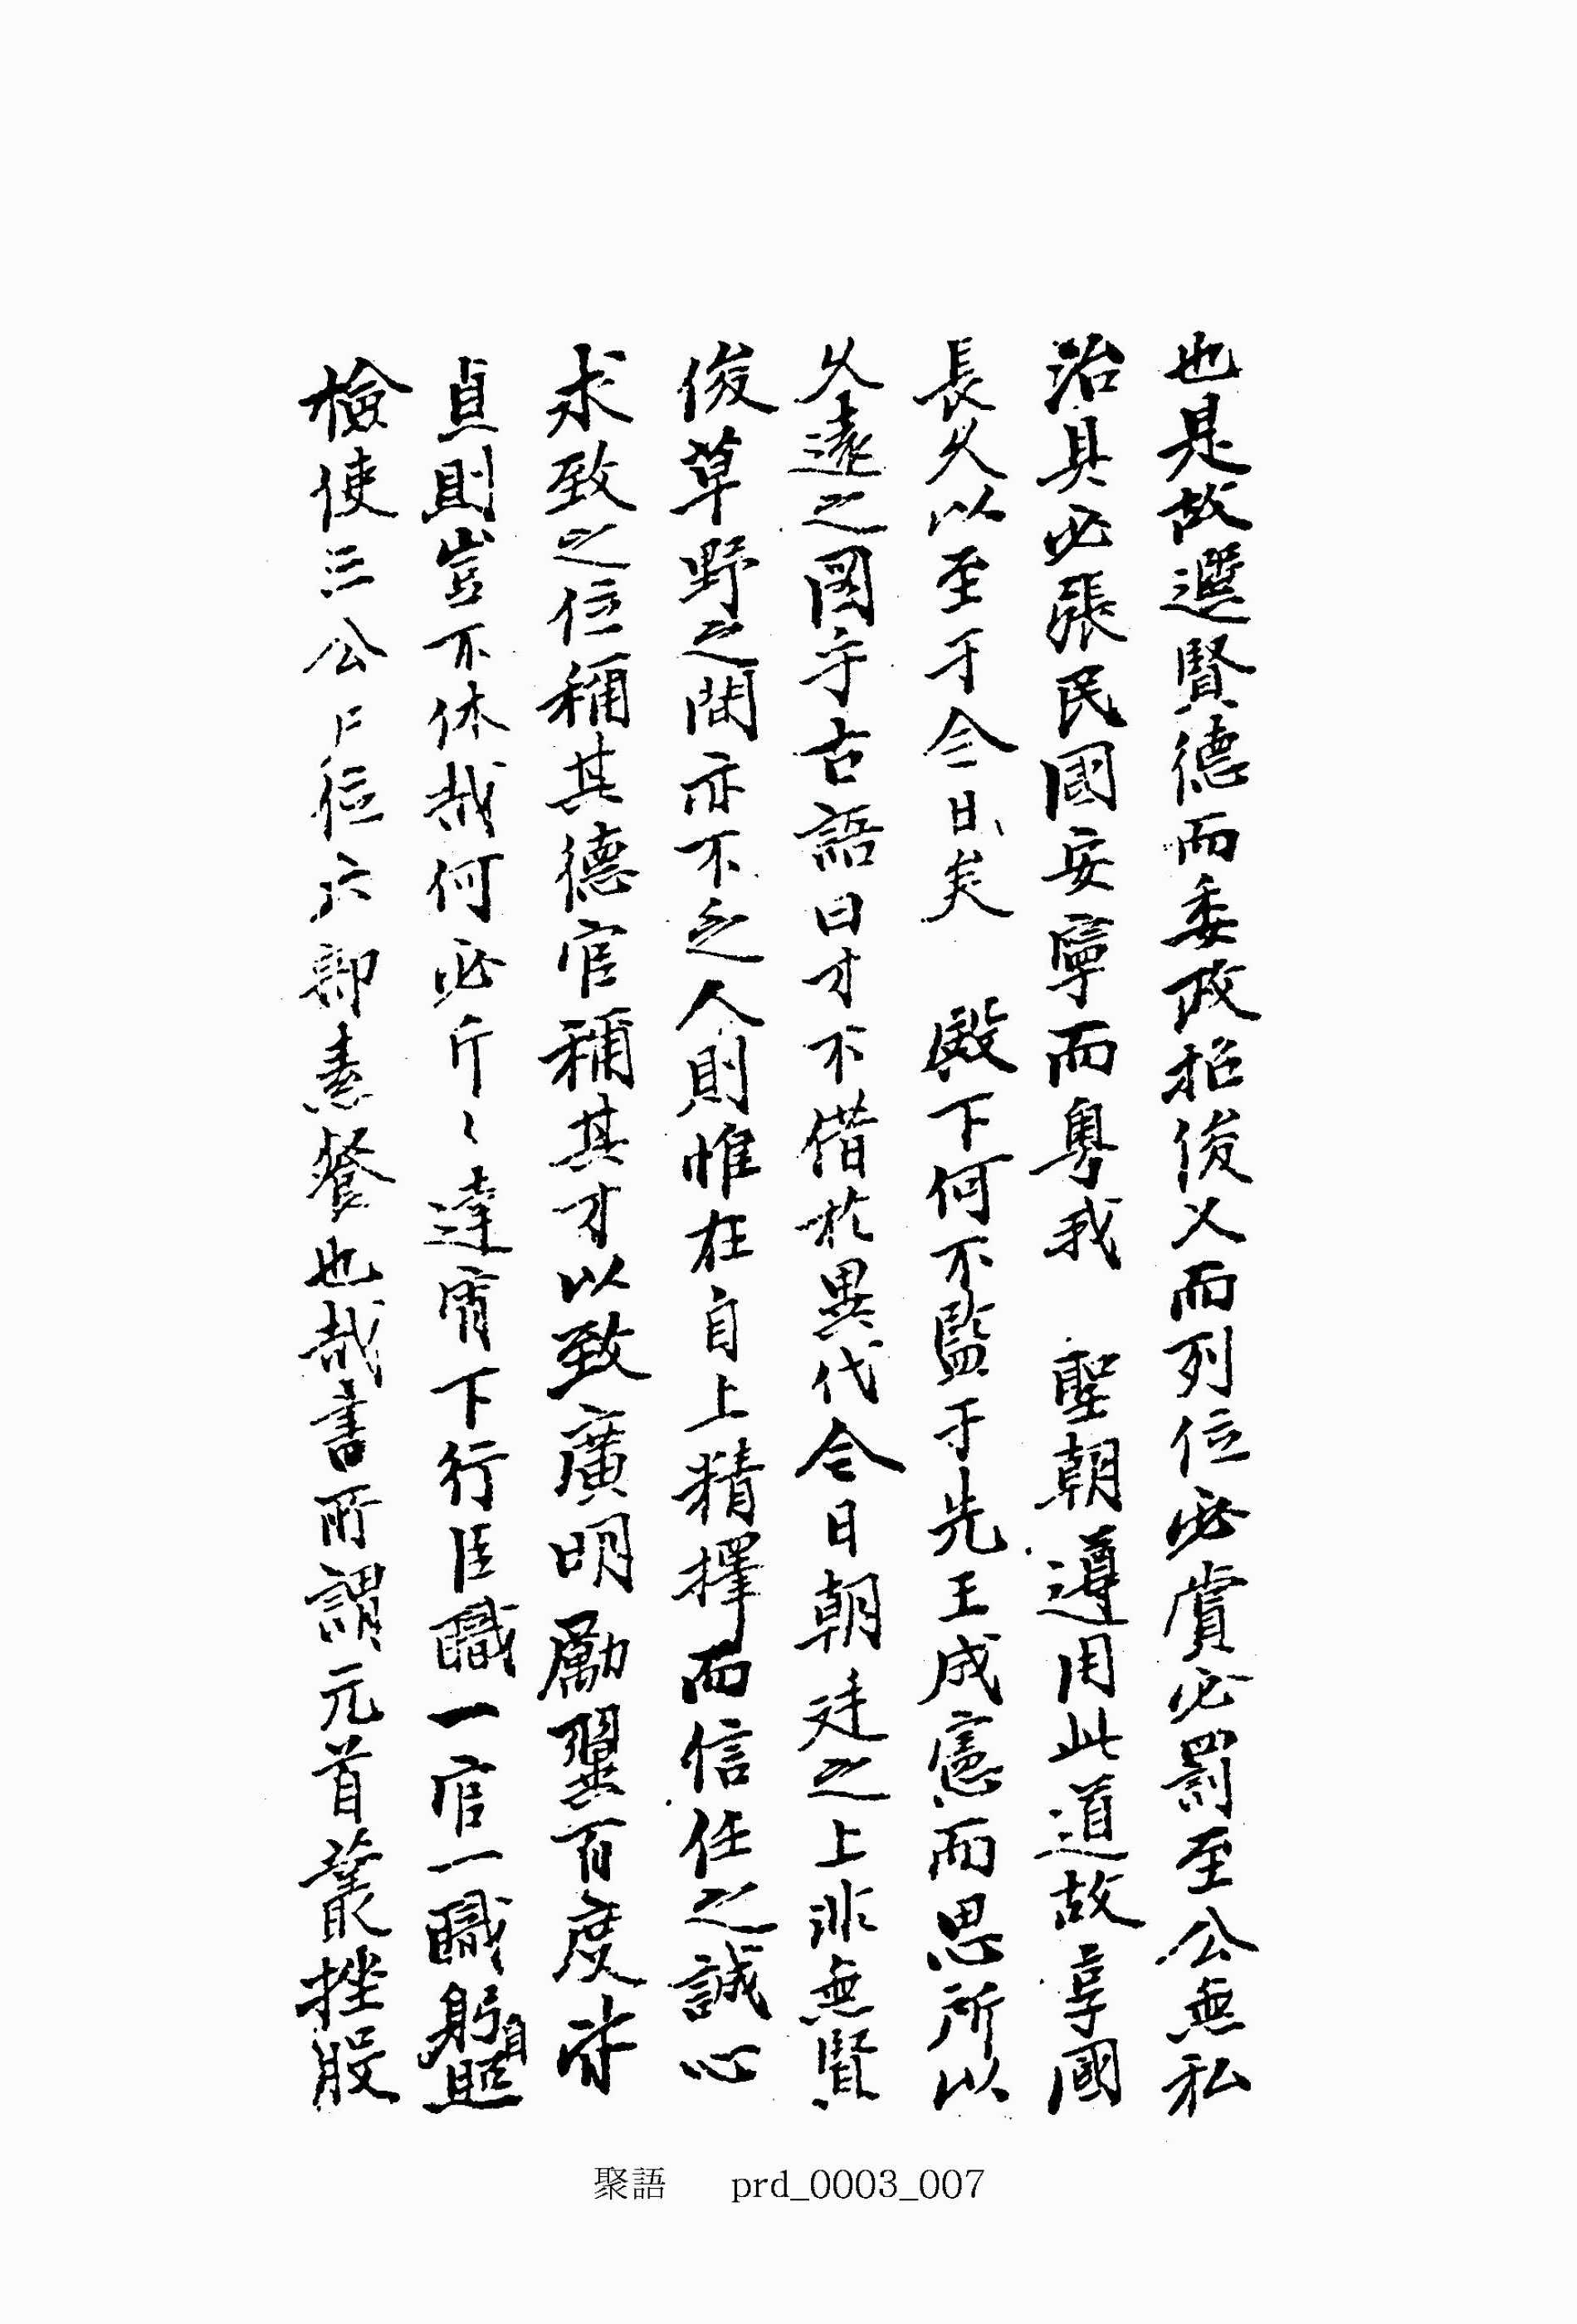 也是故選賢德而委政招俊乂而列位必賞必罰至公無私
治具必張民國安寧而粤我 聖朝遵用此道故享國
長久以至于今日矣 殿下何不監于先王成憲而思所以
久遠之圖乎古語曰才不借於異代今日朝廷之上非無賢
俊草野之間亦不乏人則惟在自上精擇而信任之誠心
求致之位稱其德官稱其才以致廣明勵翼百度
貞則豈不休哉何必斤〻達宵下行臣職一官一職躬自
檢使三公尸位六部素餐也哉書所謂元首叢挫股
聚語 prd_0003_007